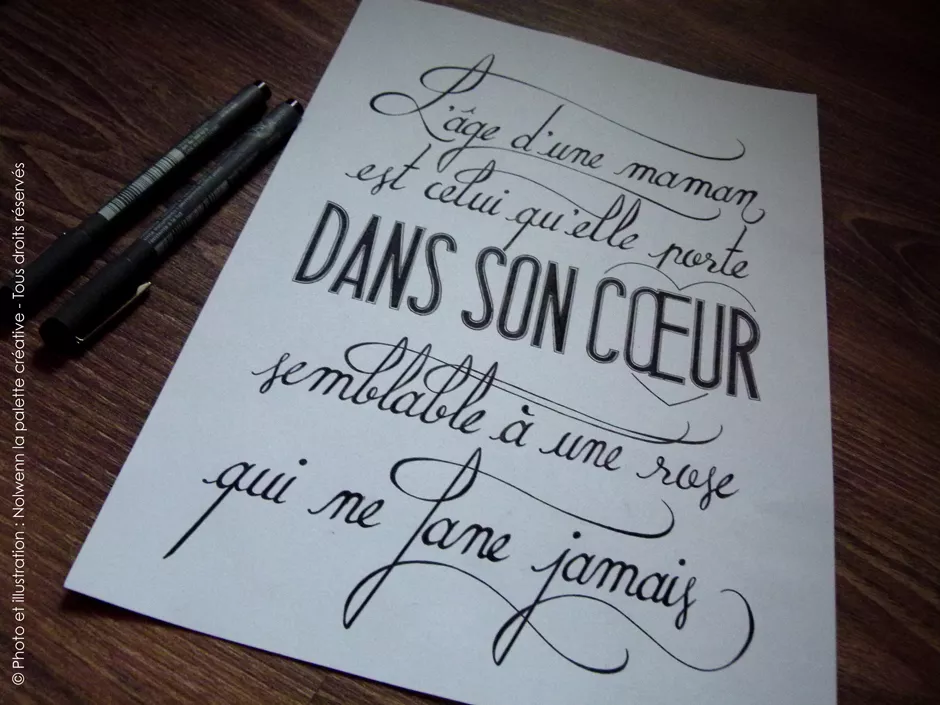 L'âge d'une maman
est celui qu'elle porte
DANS SON CŒUR
semblable à une rose
qui ne fane jamais
© Photo et illustration : Nolwenn la palette créative - Tous droits réservés